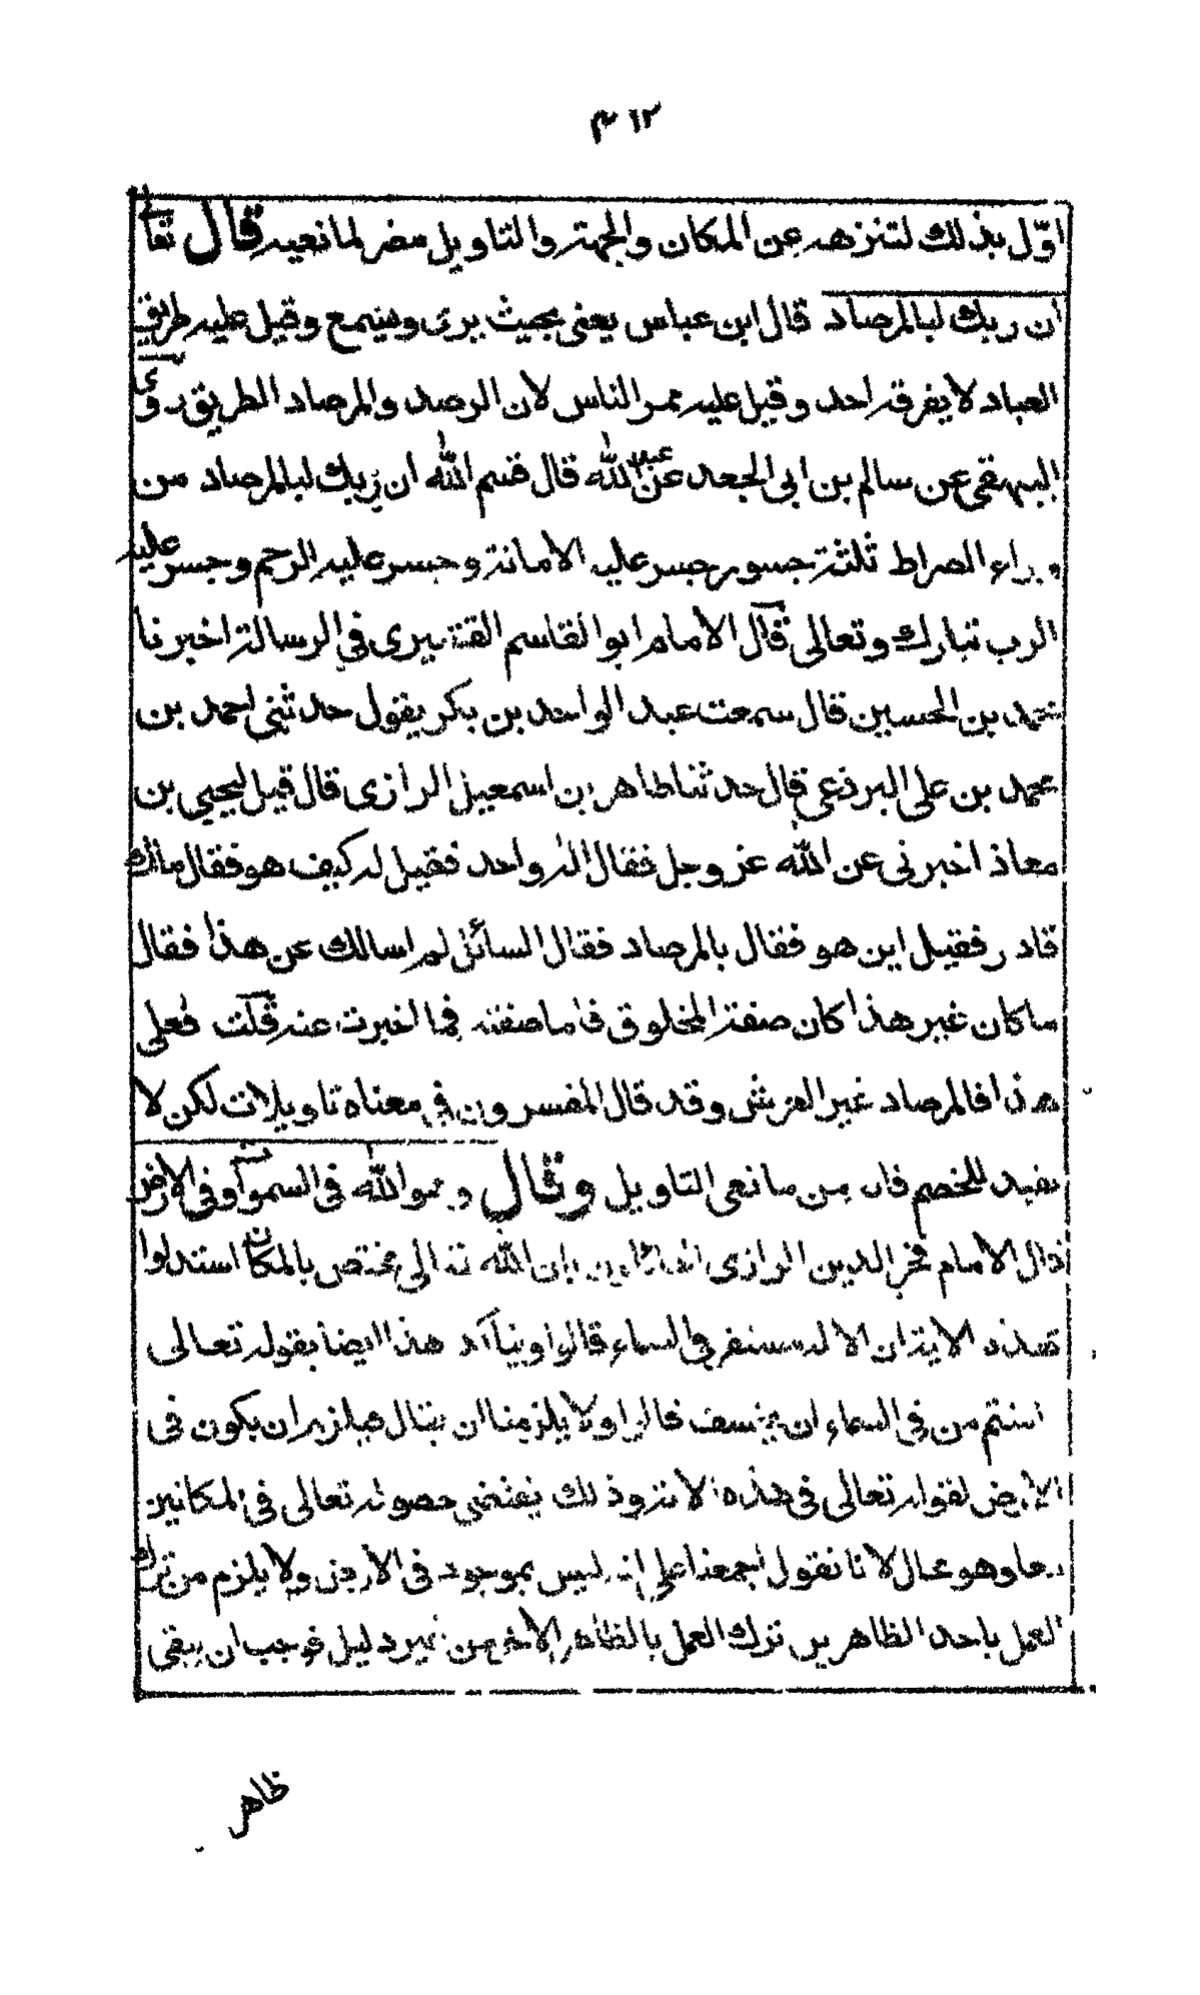 ٤١٢
اوّل بذلك لتنزهه عن المكان والجهة والتاويل مضر لمانعيه قال تعالى
ان ربك لبالمرصاد قال ابن عباس يعنى بحيث يرى ويسمع وقيل عليه طريق
العباد لا يفرقه احد وقيل عليه ممر الناس لان الرصد والمرصاد الطريق روى
البيهقى عن سالم بن ابى الجعد عن عبد الله قال قسم الله ان ربك لبالمرصاد من
وراء الصراط ثلثة جسور جسر عليه الامانة وجسر عليه الرحم وجسر عليه
الرب تبارك وتعالى قال الامام ابو القاسم القشيرى فى الرسالة اخبرنا
محمد بن الحسين قال سمعت عبد الواحد بن بكر يقول حدثنى احمد بن
محمد بن على البرذعى قال حدثنا طاهر بن اسمعيل الرازى قال قيل ليحيى بن
معاذ اخبرنى عن الله عز وجل فقال اله واحد فقيل له كيف هو فقال مالك
قادر فقيل اين هو فقال بالمرصاد فقال السائل لم اسالك عن هذا فقال
ما كان غير هذا كان صفة المخلوق فاما صفته فما اخبرت عنه قلت فعلى
هذا فالمرصاد غير العرش وقد قال المفسرون فى معناه تاويلات لكن لا
يفيد للخصم فانه من مانعى التاويل وقال وهو الله فى السموات وفى الارض
قال الامام فخر الدين الرازى القائلون بان الله تعالى مختص بالمكان استدلوا
بهذه الاية ان الاله مستقر فى السماء قالوا ويتأكد هذا ايضا بقوله تعالى
امنتم من فى السماء ان يخسف قالوا ولا يلزمنا ان يقال فيلزم ان يكون فى
الارض لقوله تعالى فى هذه الاية وذلك يقتضى حصوله تعالى فى المكانين
معا وهو محال لانا نقول اجمعنا على انه ليس بموجود فى الارض ولا يلزم من ترك
العمل باحد الظاهرين ترك العمل بالظاهر الاخر من غير دليل فوجب ان يبقى
ظاهر